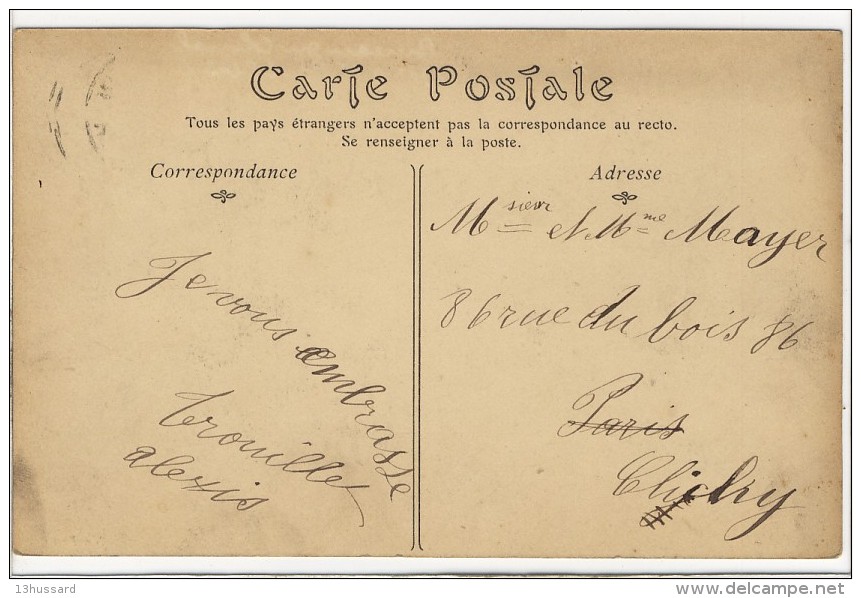 Carte Postale
Tous les pays étrangers n'acceptent pas la correspondance au recto.
Se renseigner à la poste.
Correspondance
Je vous embrasse
Trouillet
alexis
Adresse
Msieur et Mme Mayer
86 rue du bois 86
Paris
Clichy
13hussard
delcampe.net